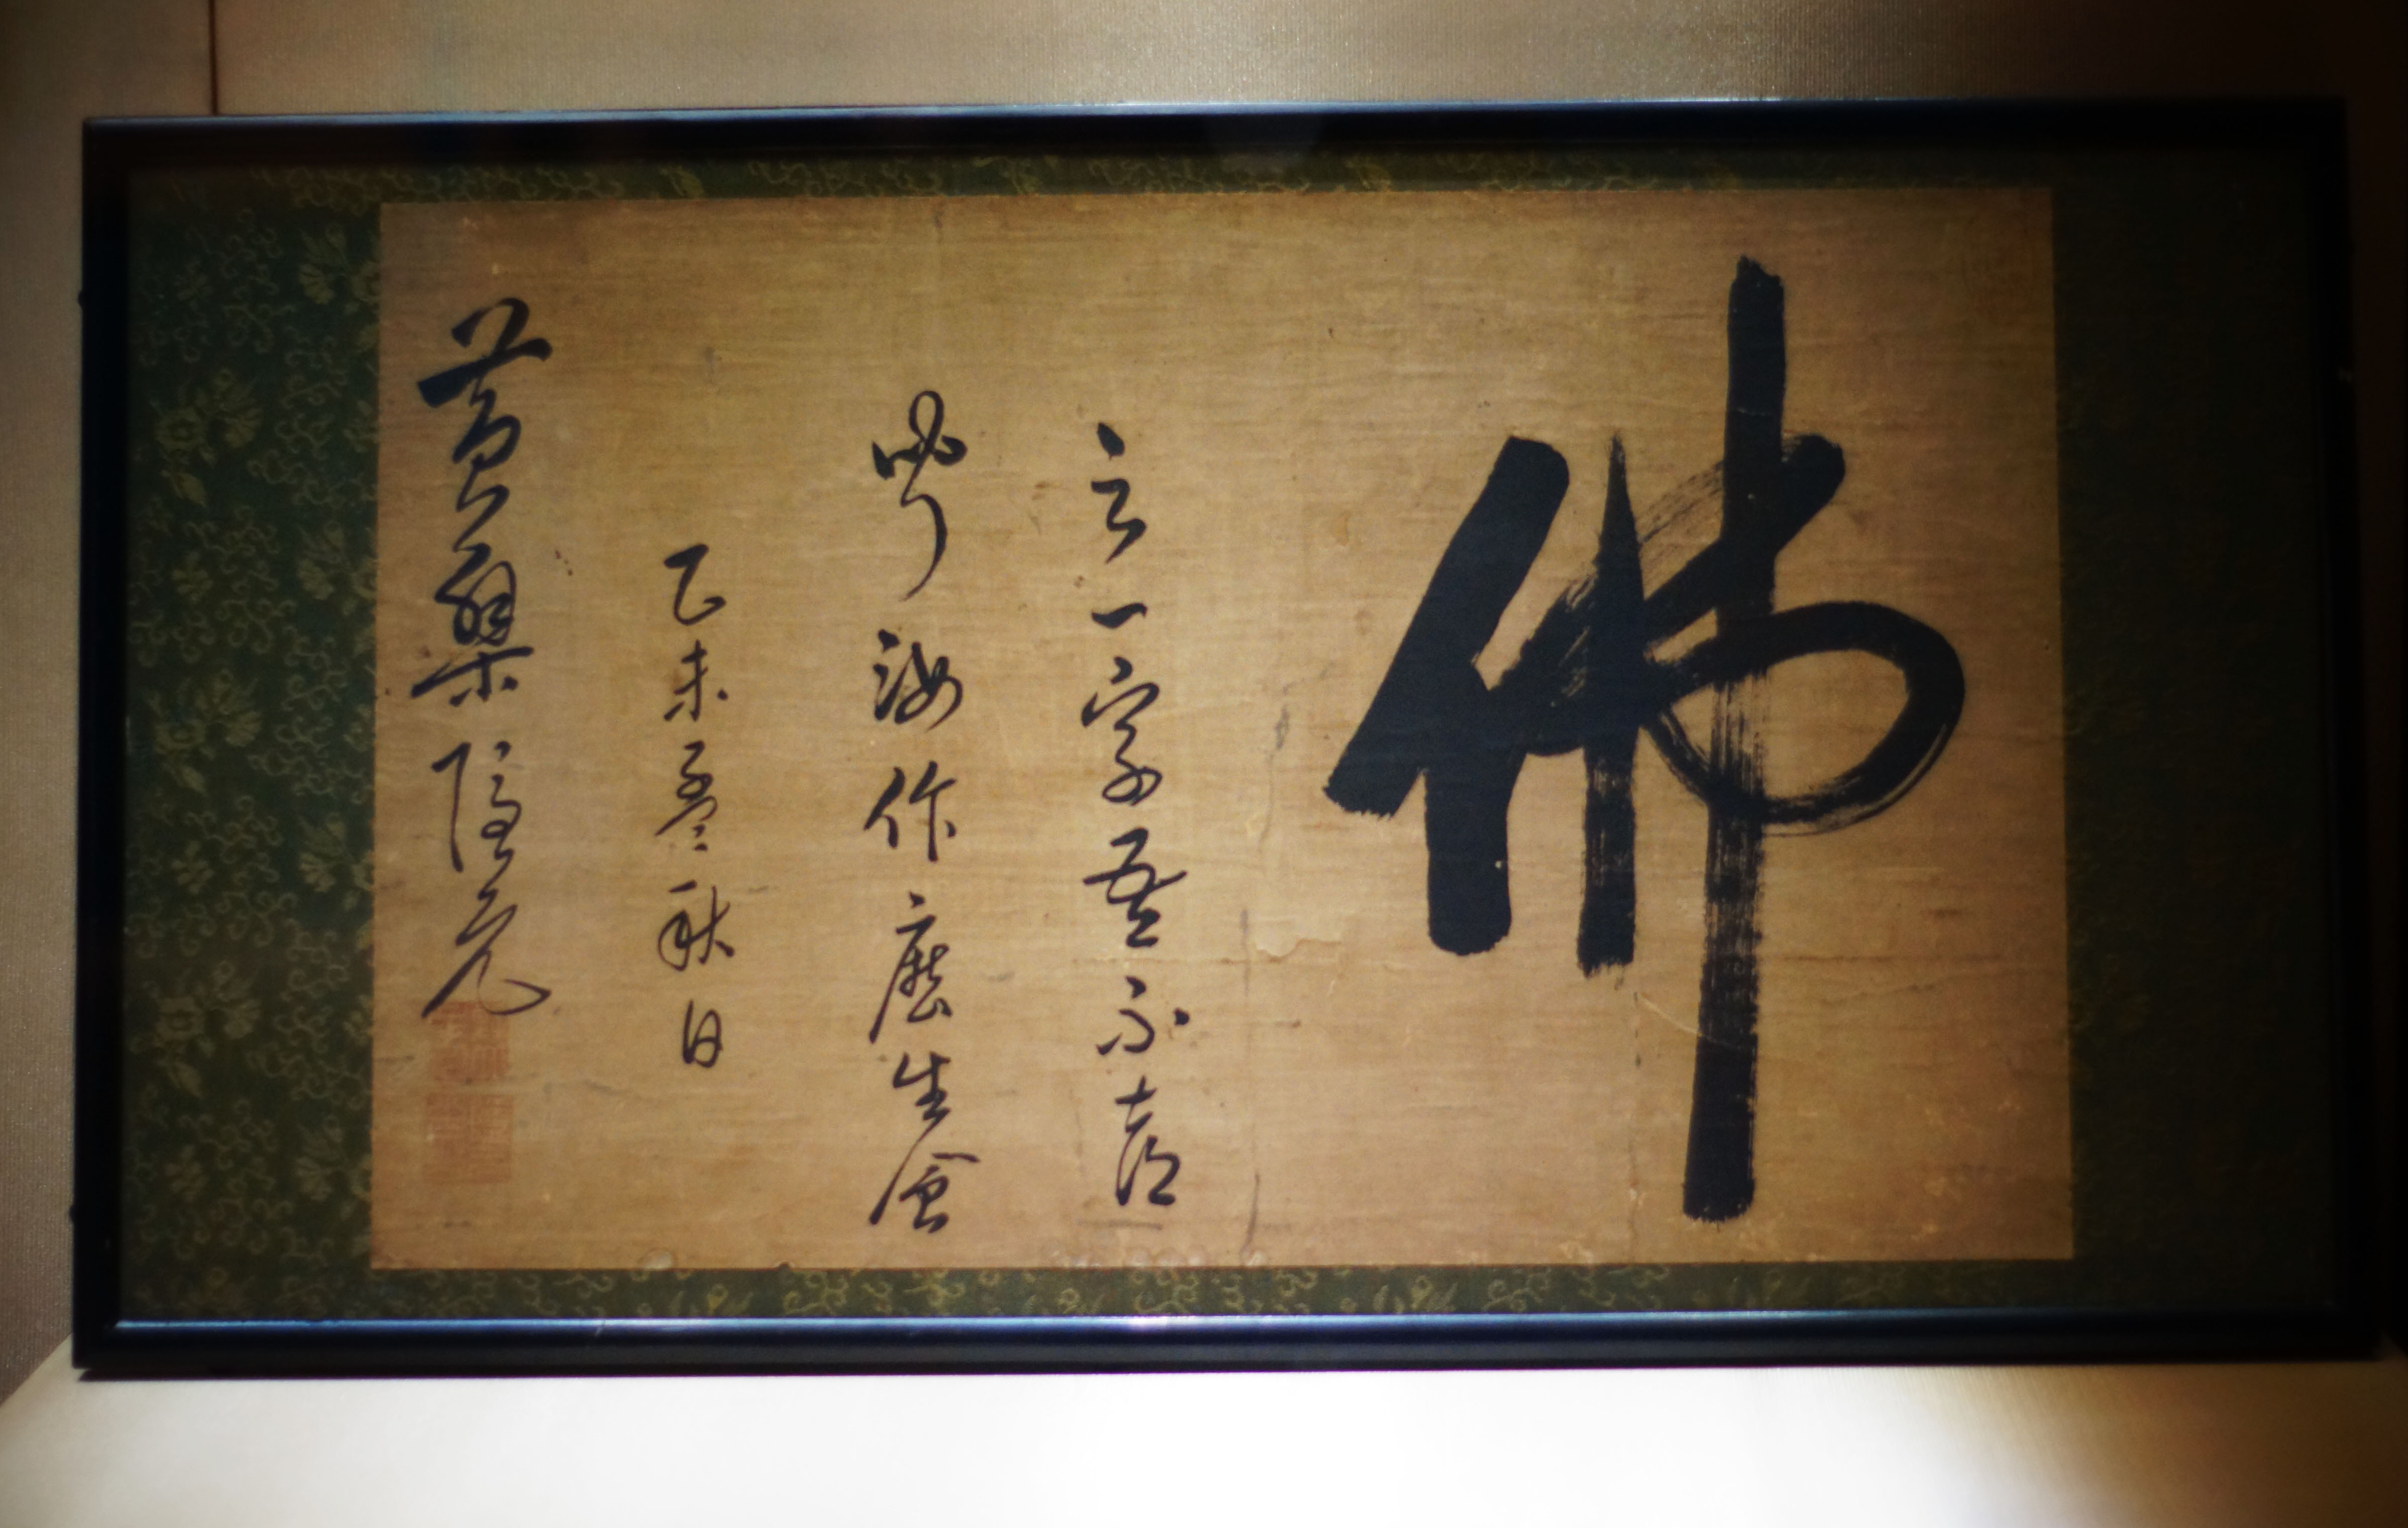 佛
之一字吾不喜
聞汝作麼生會
乙未孟秋日
黃檗隱元